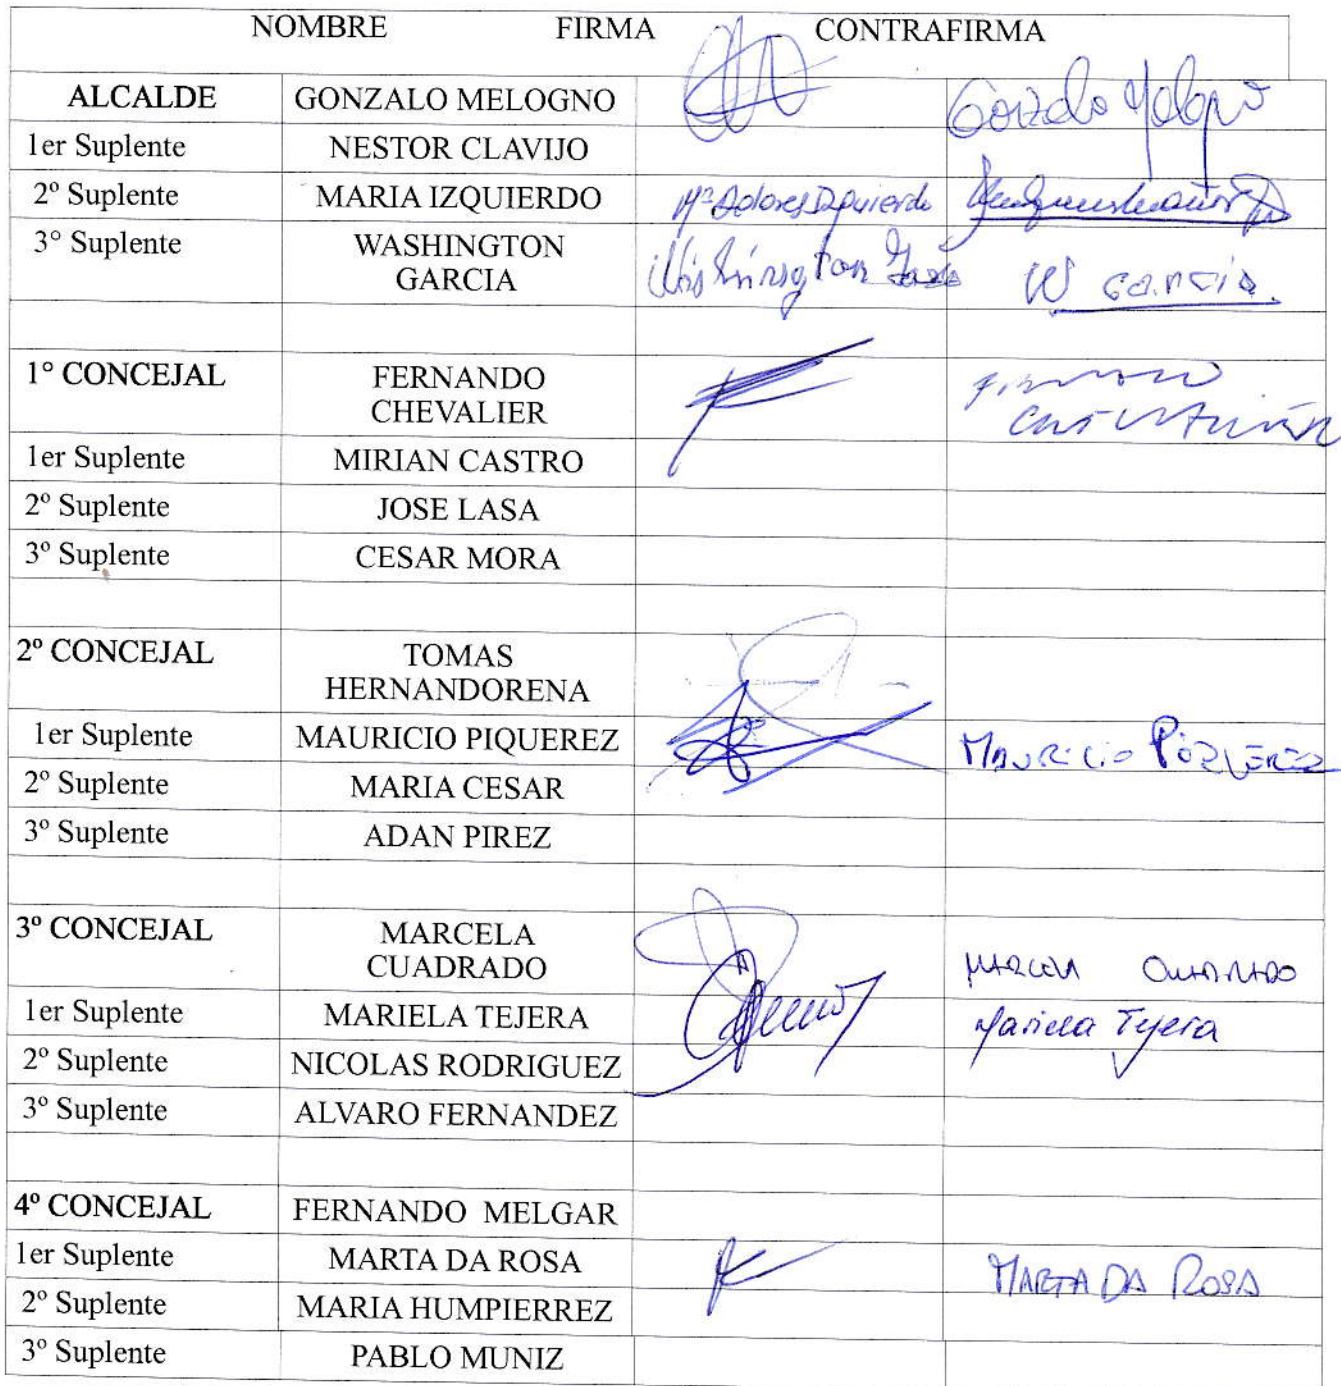 NOMBRE FIRMA CONTRAFIRMA
ALCALDE GONZALO MELOGNO Gonzalo Melogno
1er Suplente NESTOR CLAVIJO
2º Suplente MARIA IZQUIERDO Mª Dolores Izquierdo
3° Suplente WASHINGTON GARCIA Washington Garcia W Garcia.
1° CONCEJAL FERNANDO CHEVALIER
1er Suplente MIRIAN CASTRO
2º Suplente JOSE LASA
3º Suplente CESAR MORA
2º CONCEJAL TOMAS HERNANDORENA
1er Suplente MAURICIO PIQUEREZ MAURICIO PIQUEREZ
2º Suplente MARIA CESAR
3º Suplente ADAN PIREZ
3º CONCEJAL MARCELA CUADRADO MARCELA CUADRADO
1er Suplente MARIELA TEJERA Mariela Tejera
2º Suplente NICOLAS RODRIGUEZ
3º Suplente ALVARO FERNANDEZ
4º CONCEJAL FERNANDO MELGAR
1er Suplente MARTA DA ROSA MARTA DA ROSA
2º Suplente MARIA HUMPIERREZ
3º Suplente PABLO MUNIZ